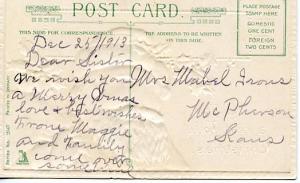 POST CARD.
THIS SIDE FOR CORRESPONDENCE
THE ADDRESS TO BE WRITTEN
ON THIS SIDE.
PLACE POSTAGE
STAMP HERE
DOMESTIC
ONE CENT
FOREIGN
TWO CENTS
Dec 25/1913
Dear Sister
we wish you
a Merry Xmas
love & Best wishes
from Maggie
and Family
come over
sometime
Mrs Mabel Irons
McPherson
Kans